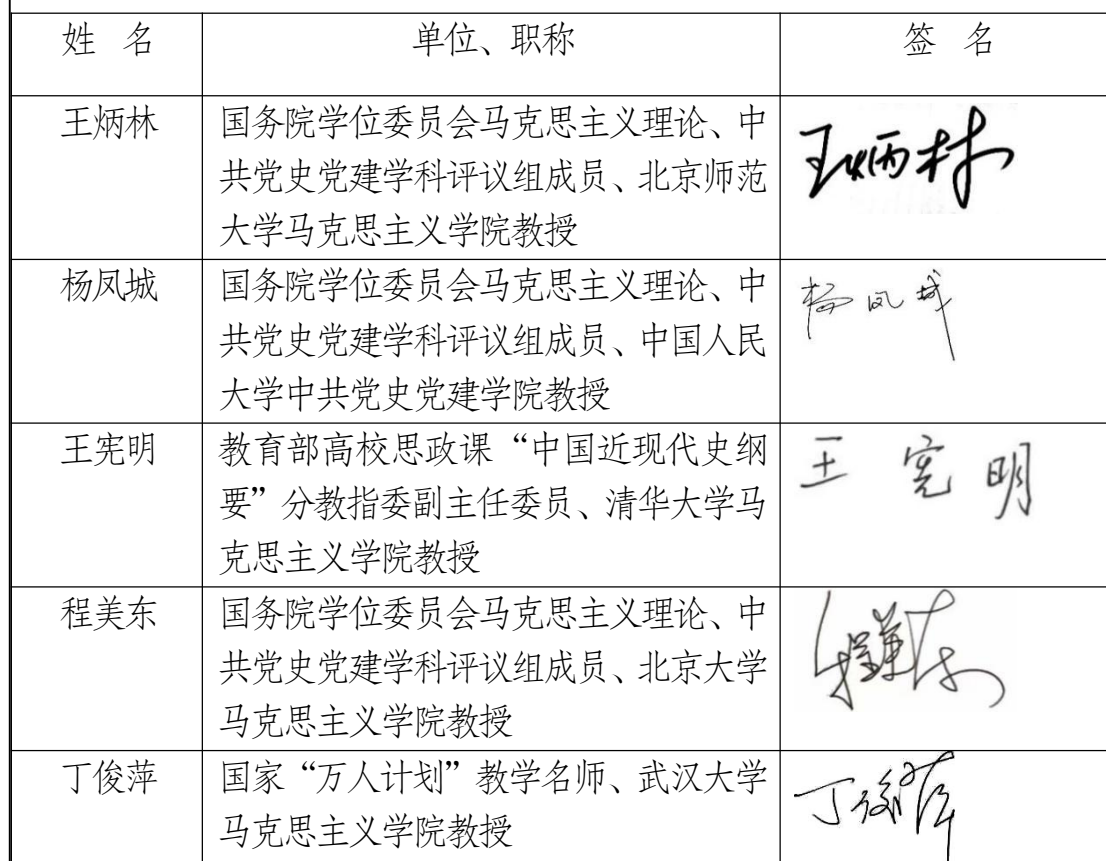 姓 名 单位、职称 签 名
王炳林 国务院学位委员会马克思主义理论、中
共党史党建学科评议组成员、北京师范
大学马克思主义学院教授
王炳林
杨凤城 国务院学位委员会马克思主义理论、中
共党史党建学科评议组成员、中国人民
大学中共党史党建学院教授
杨凤城
王宪明 教育部高校思政课“中国近现代史纲
要”分教指委副主任委员、清华大学马
克思主义学院教授
王宪明
程美东 国务院学位委员会马克思主义理论、中
共党史党建学科评议组成员、北京大学
马克思主义学院教授
程美东
丁俊萍 国家“万人计划”教学名师、武汉大学
马克思主义学院教授
丁俊萍